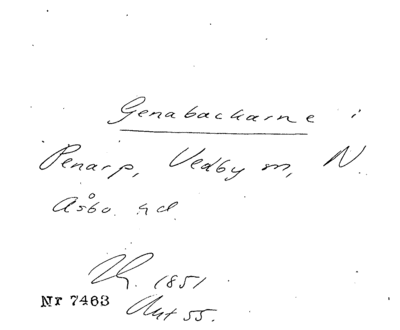 Genabackarne i
Penarp, Vedby sn, N.
Åsbo hd.
1851
Nr 7463
Akt 55.